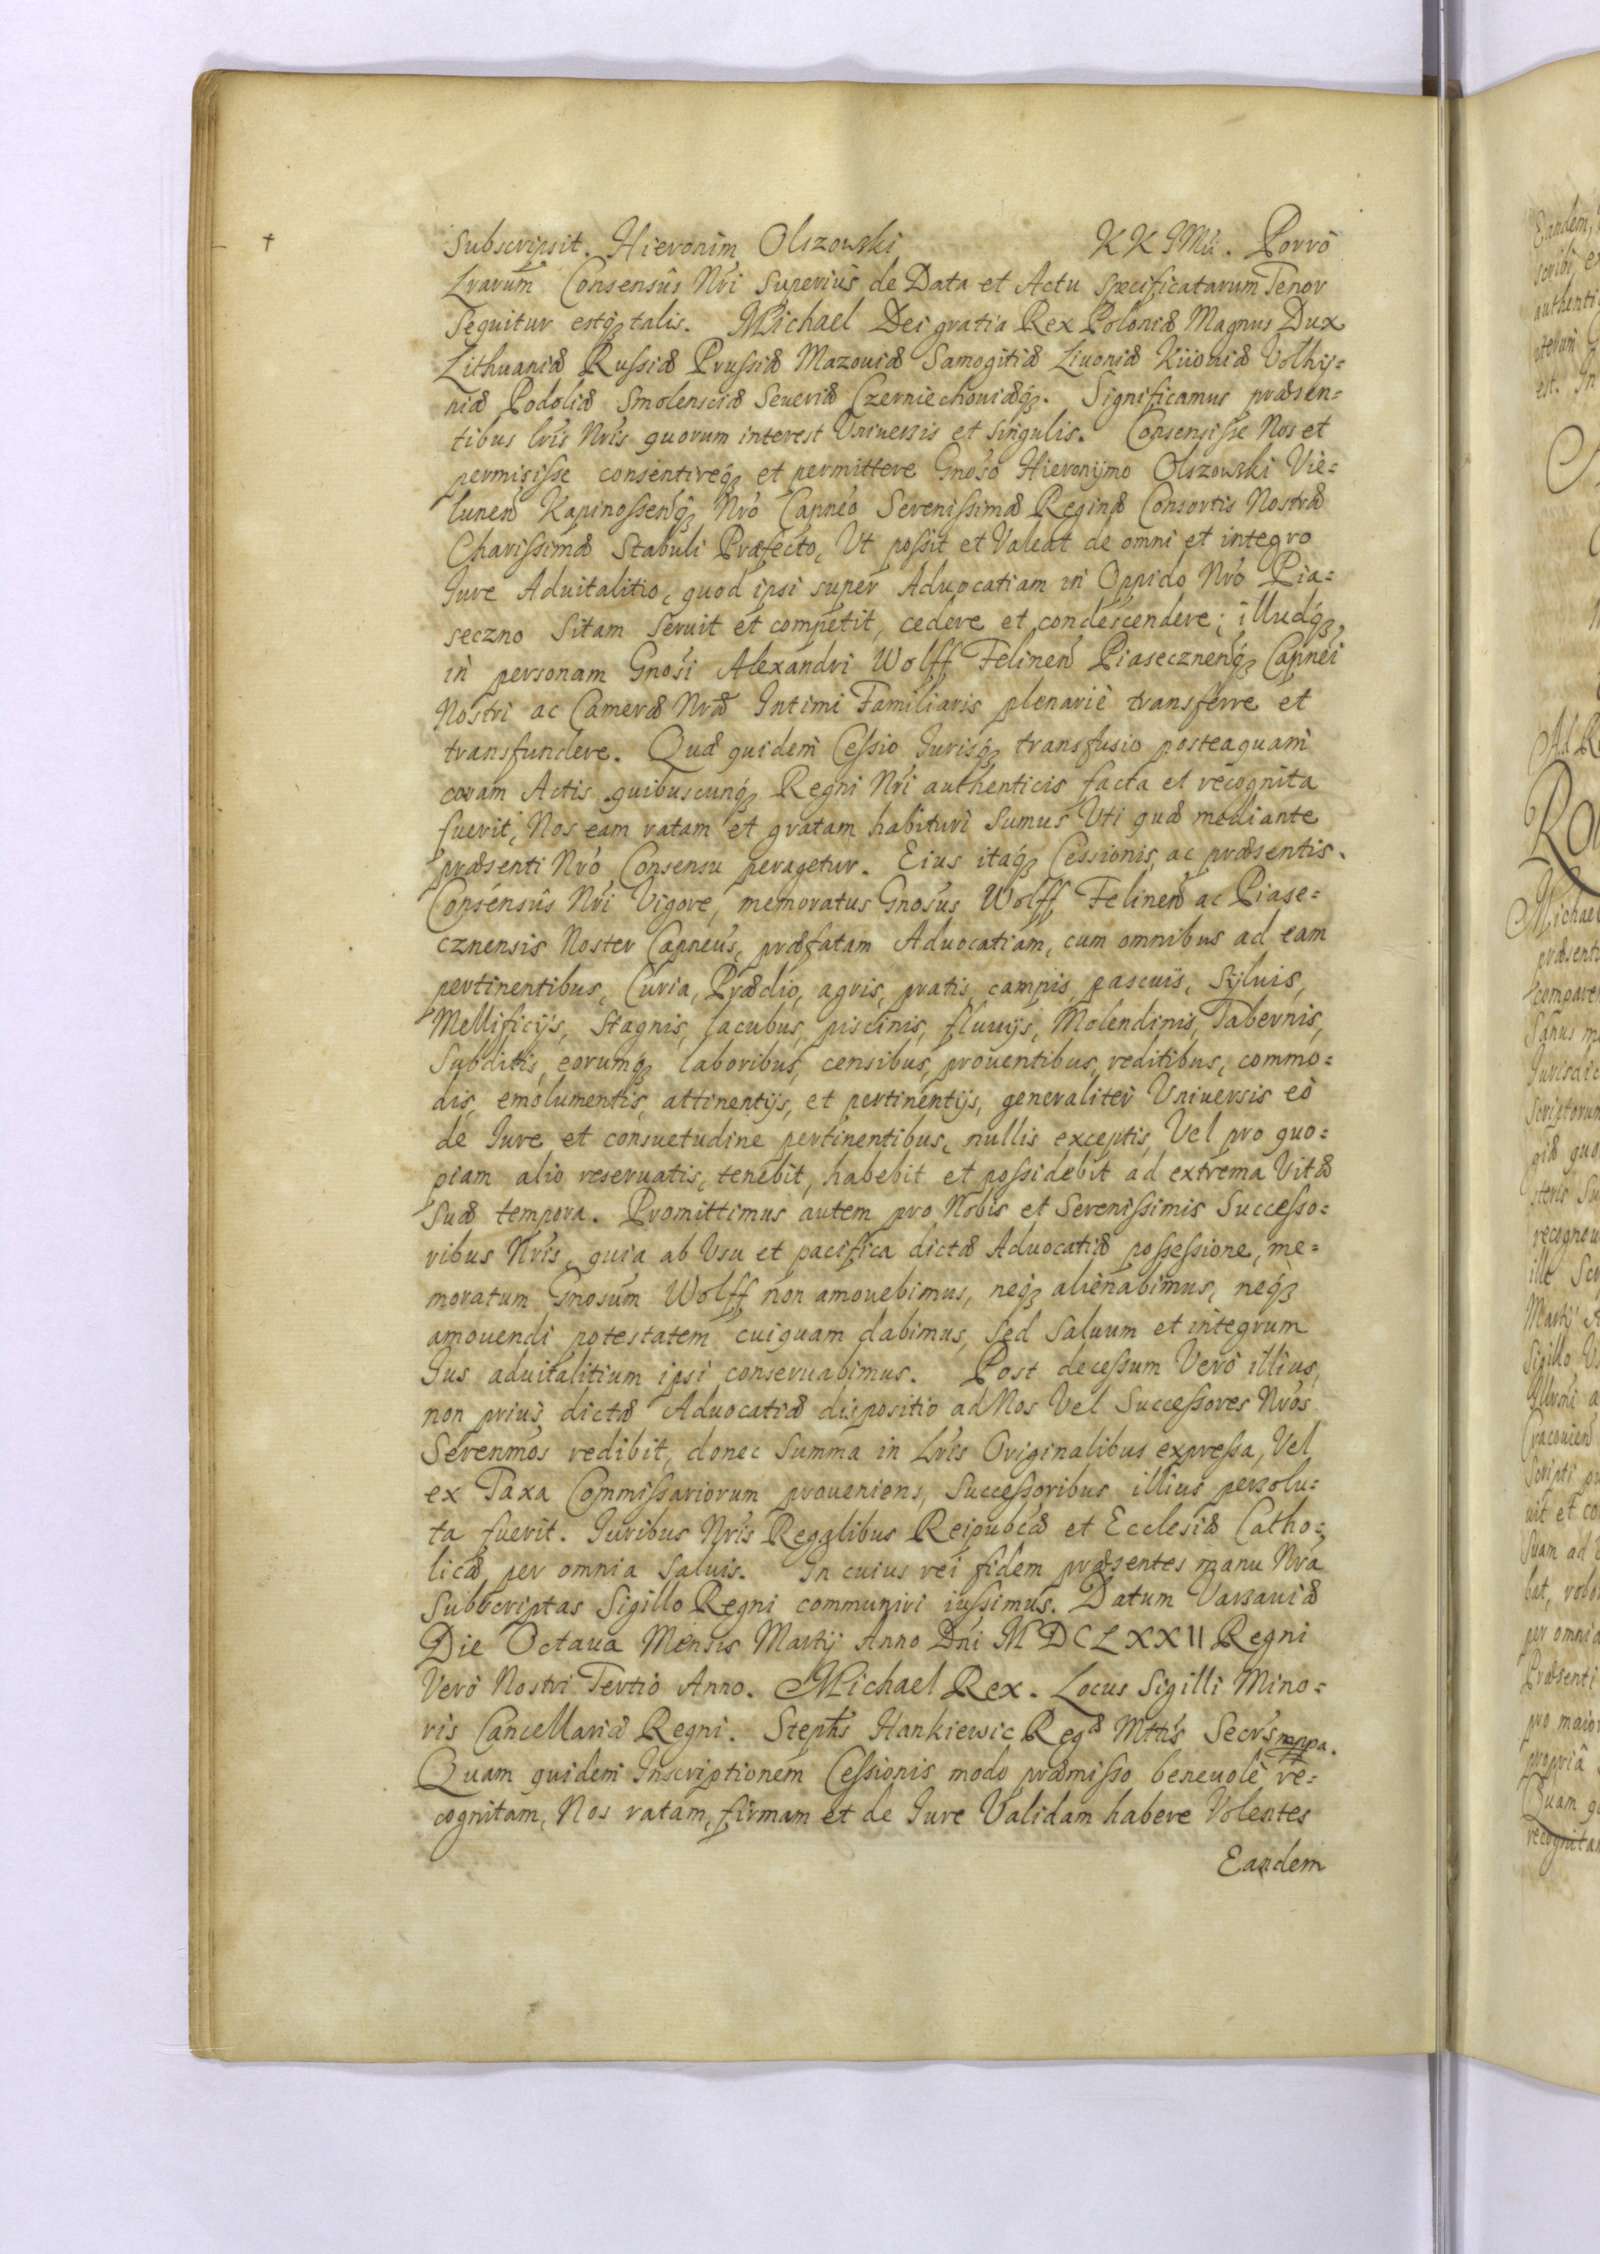 Subscripsit. Hieronim Olszowski K K J Mći. Porrò
Lrarum Consensûs Nři Superiùs de Data et Actu specificatarum Tenor
Sequitur estq́ talis. Michael Dei gratia Rex Poloniæ Magnus Dux
Lithuaniæ Russiæ Prussiæ Mazouiæ Samogitiæ Liuoniæ Kiiouiæ Volhij=
niæ Podoliæ Smolensciæ Seueriæ Czerniechouiæq́. Significamus præsen=
tibus lrís Nrís quorum interest Vniuersis et singulis. Consensisse Nos et
permisisse consentireq́ et permittere Gnóso Hieronijmo Olszowski Vie=
lunen̄ Kapinossen̄q́ Nró Capnéo Serenissimæ Reginæ Consortis Nostræ
Charissimæ Stabuli Præfecto, Vt possit et Valeat de omni et integro
Iure Aduitalitio, quod ipsi super Aduocatiam in Oppido Nró Pia=
seczno Sitam Seruit et competit, cedere et condescendere; illudq́,
in personam Gnósi Alexandri Wolff Felinen̄ Piasecznen̄q́ Capnéi
Nostri ac Cameræ Nræ Intimi Familiaris plenariè transferre et
transfundere. Quæ quidem Cessio Iurisq́ transfusio posteaquam
coram Actis quibuscunq́ Regni Nrí authenticis facta et recognita
fuerit, Nos eam ratam et gratam habituri sumus Vti quæ mediante
præsenti Nró Consensu peragetur. Eius itaq́ Cessionis, ac præsentis
Consensûs Nrí Vigore, memoratus Gnósus Wolff Felinen̄ ac Piase=
cznensis Noster Capnéus, præfatam Aduocatiam, cum omnibus ad eam
pertinentibus, Curia, Prædio, agris, pratis, campis, pascuis, Sÿluis,
Mellificijs, Stagnis, lacubus, piscinis, fluuijs, Molendinis, Tabernis,
Subditis, eorumq́ laboribus, censibus, prouentibus, reditibus, commo=
dis, emolumentis, attinentijs, et pertinentijs, generaliter Vniuersis eò
de Iure et consuetudine pertinentibus, nullis exceptis, Vel pro quo=
piam alio reseruatis, tenebit, habebit et possidebit ad extrema Vitæ
Suæ tempora. Promittimus autem pro Nobis et Serenissimis Successo=
ribus Nrís, quia ab Vsu et pacifica dictæ Aduocatiæ possessione, me=
moratum Gnósum Wolff non amouebimus, neq́ alienabimus, neq́
amouendi potestatem cuiquam dabimus, Sed Saluum et integrum
Ius aduitalitium ipsi conseruabimus. Post decessum Verò illius,
non priùs dictæ Aduocatiæ dispositio ad Nos Vel Successores Nrós
Serenmós redibit, donec Summa in Lrís Originalibus expressa, Vel
ex Taxa Commissariorum proueniens, Successoribus illius persolu=
ta fuerit. Iuribus Nrís Regalibus Reipubcæ et Ecclesiæ Catho=
licæ per omnia Saluis. In cuius rei fidem præsentes manu Nrá
Subscriptas Sigillo Regni communiri iussimus. Datum Varsauiæ
Die Octaua Mensis Martij Anno Dńi M D C L X X II Regni
Verò Nostri Tertio Anno. Michael Rex. Locus Sigilli Mino=
ris Cancellariæ Regni. Stephs Hankiewic Regæ Mttis Secrs mppa.
Quam quidem Inscriptionem Cessionis modo præmisso beneuolè re=
cognitam, Nos ratam, firmam et de Iure Validam habere Volentes
Eandem